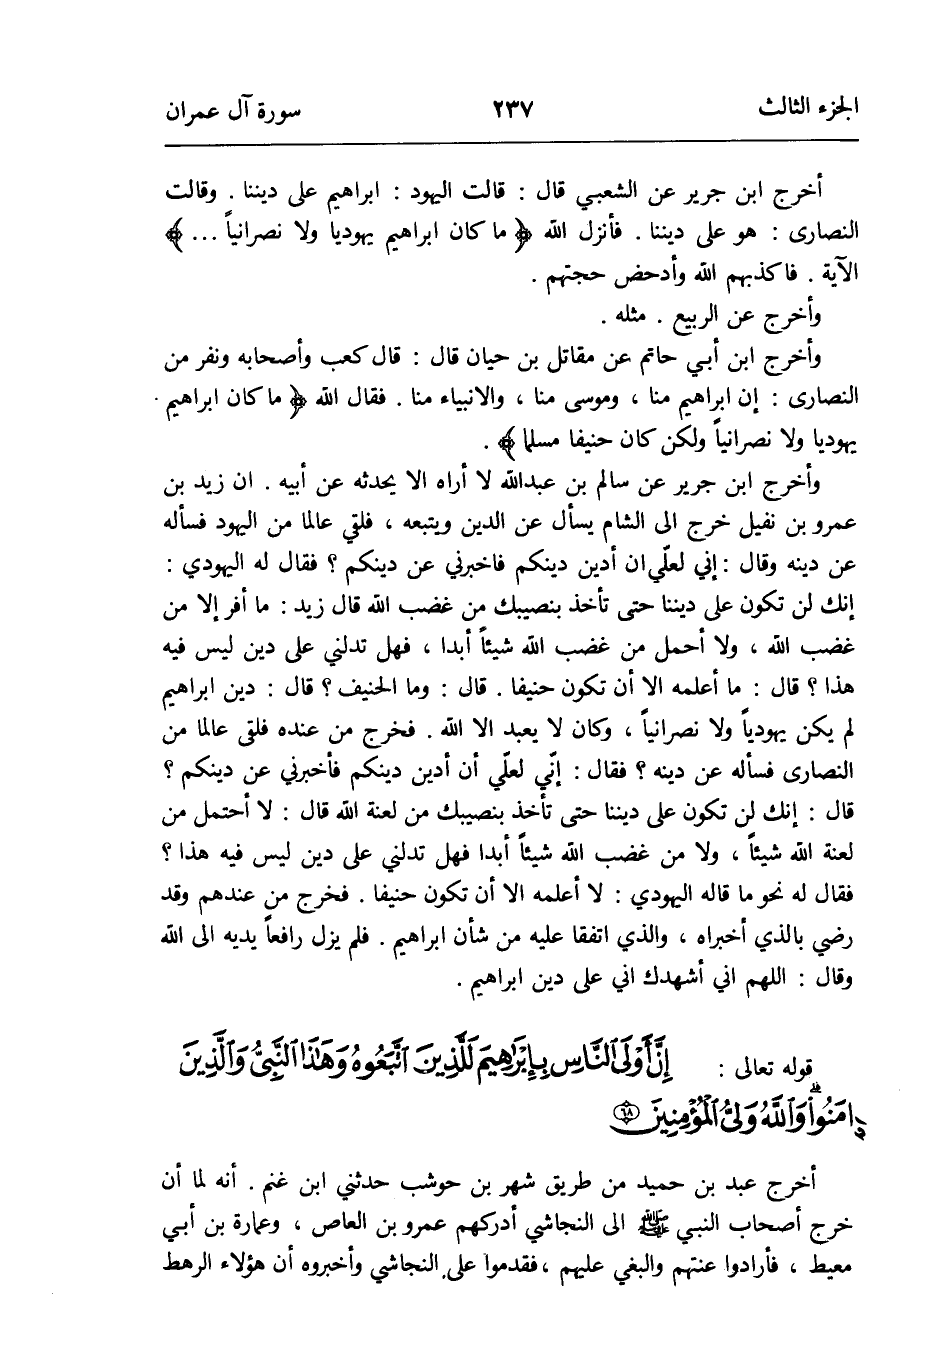 الجزء الثالث ٢٣٧ سورة آل عمران
أخرج ابن جرير عن الشعبي قال : قالت اليهود : ابراهيم على ديننا . وقالت
النصارى : هو على ديننا . فأنزل الله ﴿ ما كان ابراهيم يهوديا ولا نصرانياً ... ﴾
الآية . فاكذبهم الله وأدحض حجتهم .
وأخرج عن الربيع . مثله .
وأخرج ابن أبي حاتم عن مقاتل بن حيان قال : قال كعب وأصحابه ونفر من
النصارى : إن ابراهيم منا ، وموسى منا ، والانبياء منا . فقال الله ﴿ ما كان ابراهيم
يهوديا ولا نصرانياً ولكن كان حنيفا مسلما ﴾ .
وأخرج ابن جرير عن سالم بن عبدالله لا أراه الا يحدثه عن أبيه . ان زيد بن
عمرو بن نفيل خرج الى الشام يسأل عن الدين ويتبعه ، فلقي عالما من اليهود فسأله
عن دينه وقال : إني لعلّي ان أدين دينكم فاخبرني عن دينكم ؟ فقال له اليهودي :
إنك لن تكون على ديننا حتى تأخذ بنصيبك من غضب الله قال زيد : ما أفر إلا من
غضب الله ، ولا أحمل من غضب الله شيئاً أبدا ، فهل تدلني على دين ليس فيه
هذا ؟ قال : ما أعلمه الا أن تكون حنيفا . قال : وما الحنيف ؟ قال : دين ابراهيم
لم يكن يهودياً ولا نصرانياً ، وكان لا يعبد الا الله . فخرج من عنده فلقى عالما من
النصارى فسأله عن دينه ؟ فقال : إنّي لعلّي أن أدين دينكم فأخبرني عن دينكم ؟
قال : إنك لن تكون على ديننا حتى تأخذ بنصيبك من لعنة الله قال : لا أحتمل من
لعنة الله شيئاً ، ولا من غضب الله شيئاً أبدا فهل تدلني على دين ليس فيه هذا ؟
فقال له نحو ما قاله اليهودي : لا أعلمه الا أن تكون حنيفا . فخرج من عندهم وقد
رضي بالذي أخبراه ، والذي اتفقا عليه من شأن ابراهيم . فلم يزل رافعاً يديه الى الله
وقال : اللهم اني أشهدك اني على دين ابراهيم .
قوله تعالى : إِنَّ أَوْلَى ٱلنَّاسِ بِإِبْرَٰهِيمَ لَلَّذِينَ ٱتَّبَعُوهُ وَهَٰذَا ٱلنَّبِىُّ وَٱلَّذِينَ
ءَامَنُوا۟ وَٱللَّهُ وَلِىُّ ٱلْمُؤْمِنِينَ ٦٨
أخرج عبد بن حميد من طريق شهر بن حوشب حدثني ابن غنم . أنه لما أن
خرج أصحاب النبي ﷺ الى النجاشي أدركهم عمرو بن العاص ، وعمارة بن أبي
معيط ، فأرادوا عنتهم والبغي عليهم ، فقدموا على النجاشي وأخبروه أن هؤلاء الرهط